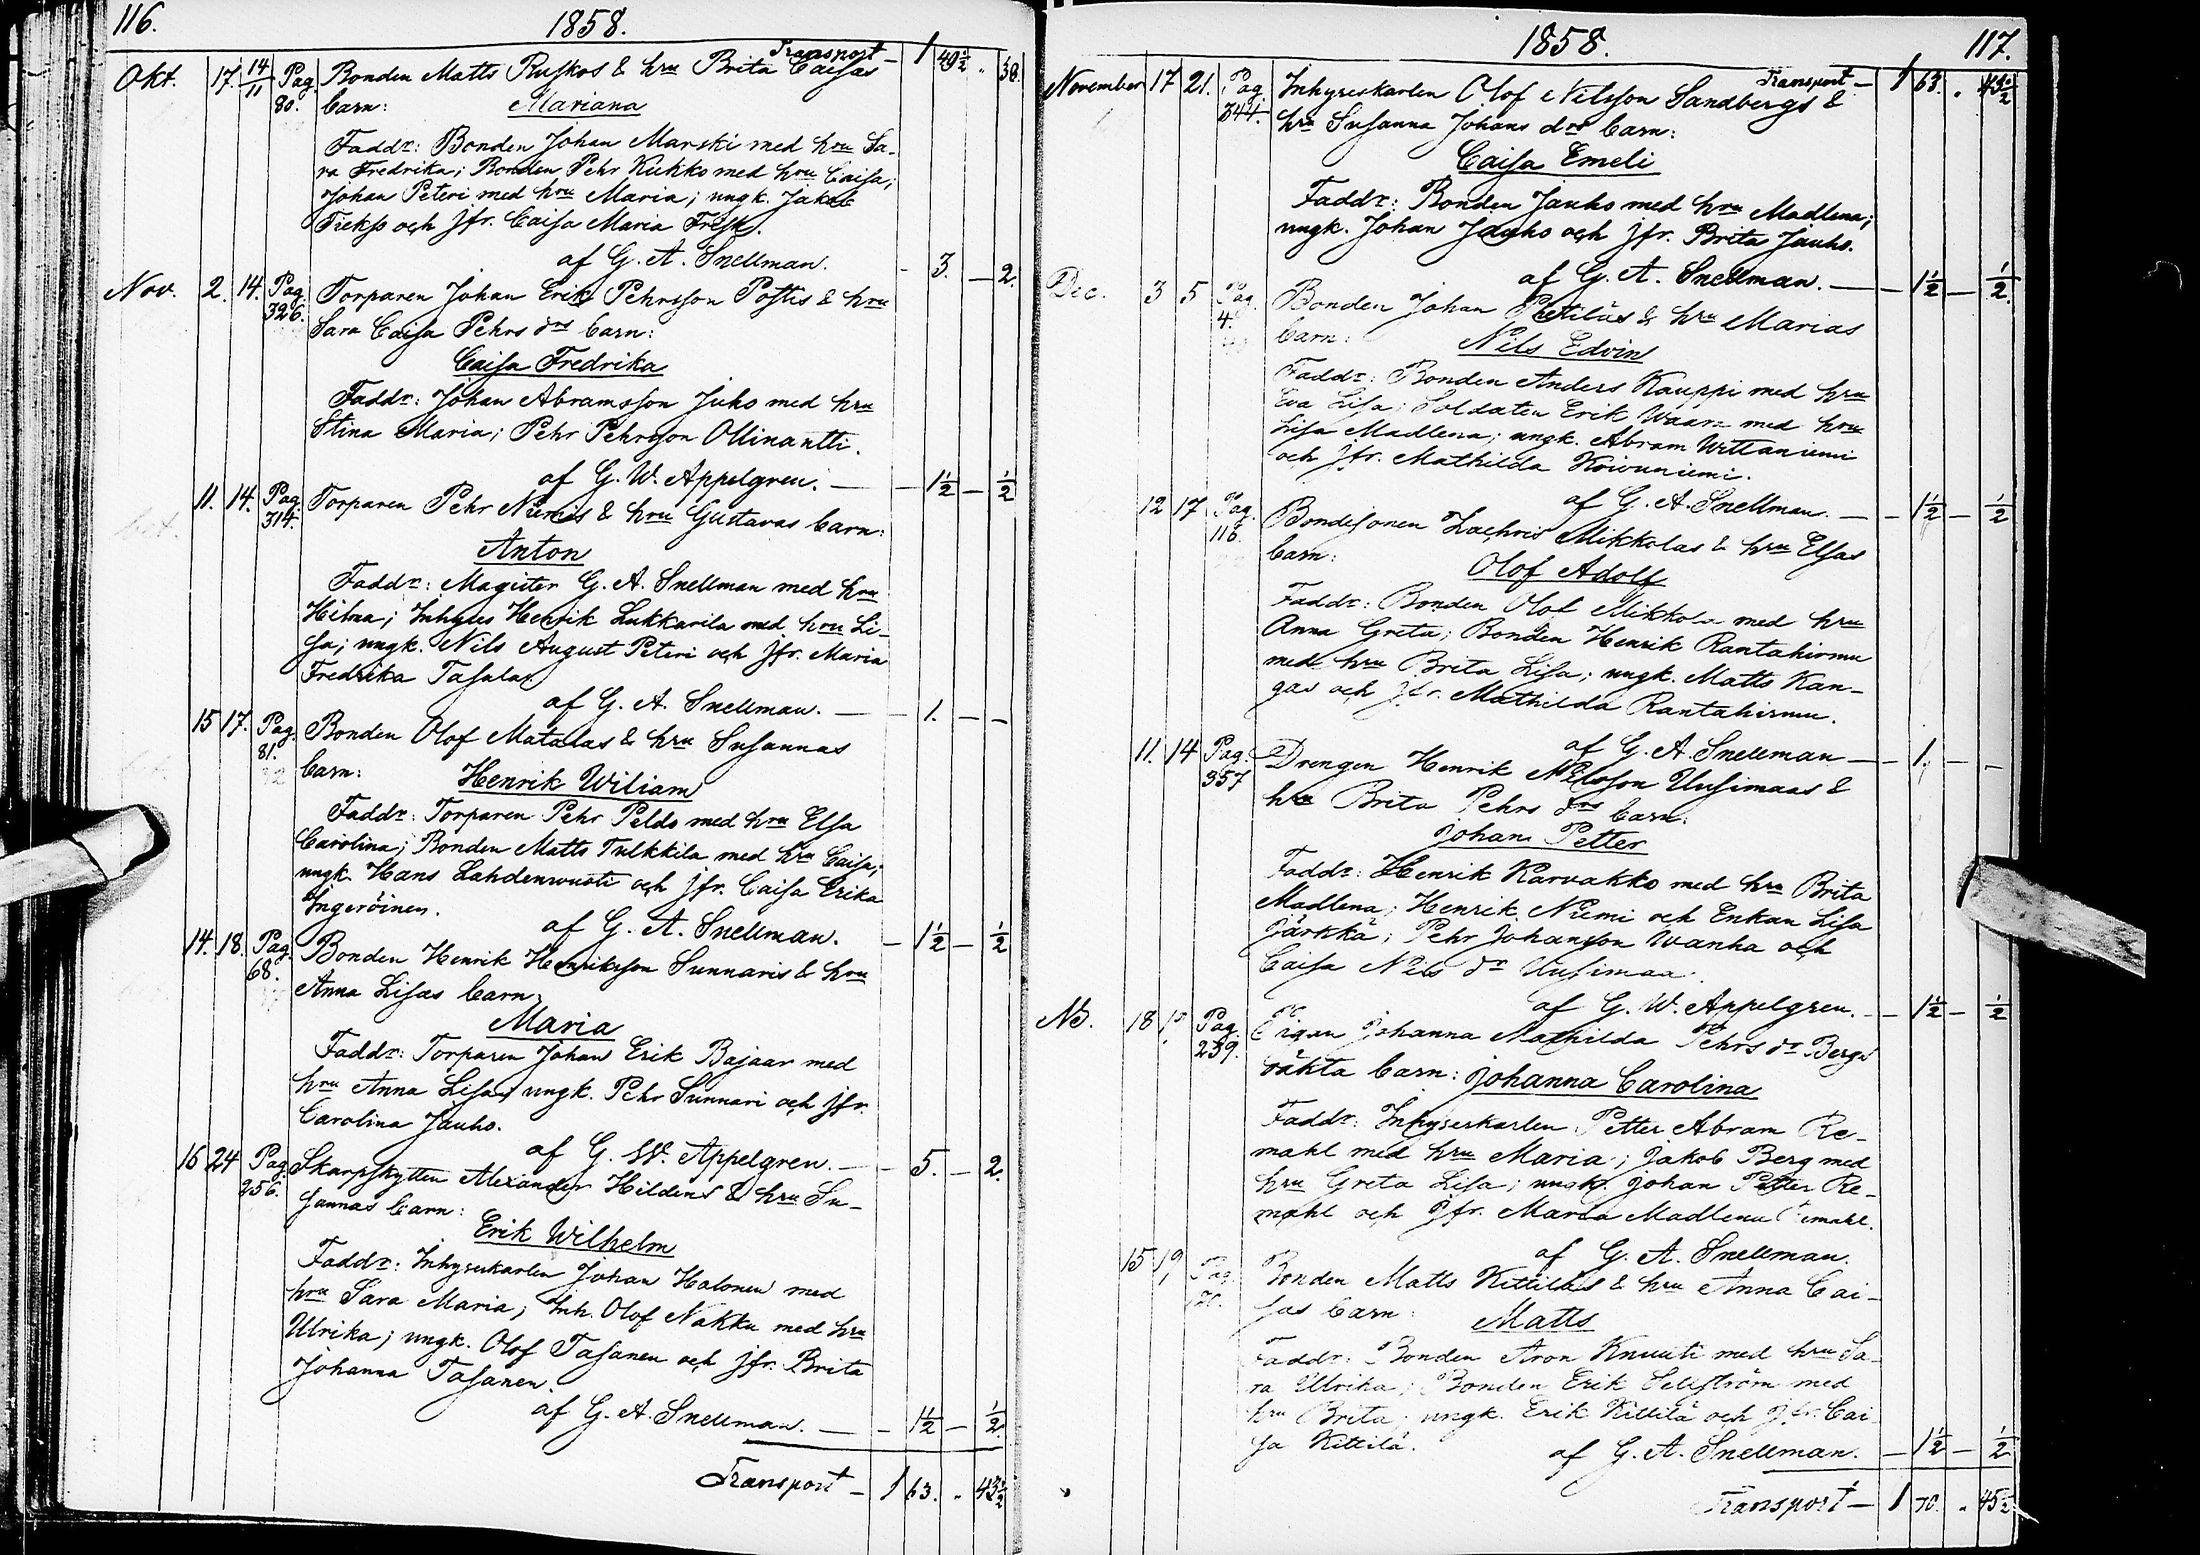 116.
1858.
Transport — 1 49½ " 38.
Okt. 17. 14/11 Pag 80. Bonden Matts Ruskos & hru Brita Caisas
barn: Mariana
Faddr: Bonden Johan Marski med hru Sa-
ra Fredrika; Bonden Pehr Kukko med hru Caisa;
Johan Peteri med hru Maria; ungk. Jakob
och Jfr. Caisa Maria Fresk.
af G. A. Snellman. - 3. — 2.
Nov. 2. 14. Pag. 326. Torparen Johan Erik Pehrsson Postis & hru
Sara Caisa Pehrs drs barn:
Caisa Fredrika
Faddr: Johan Abramsson Juho med hru
Stina Maria; Pehr Pehrsson Ollinantti.
af G. W. Appelgren. — — 1½ — ½
11. 14. Pag. 314. Torparen Pehr Niemis & hru Gustavas barn:
Anton
Faddr: Magister G. A. Snellman med hru
Hilma; Inhyses Henrik Lukkarila med hru Li-
sa; ungk. Nils August Peteri och Jfr. Maria
Fredrika Tasala
af G. A. Snellman. — — 1. — —
15 17. Pag. 81. Bonden Olof Matalas & hru Susannas
barn: Henrik Wiliam
Faddr: Torparen Pehr Peldo med hru Elsa
Carolina; Bonden Matts Tulkkila med hru Caisa;
ungk. Hans Lahdenwuoti och Jfr. Caisa Erika
Ingeröinen.
af G. A. Snellman. — 1½ — ½
14. 18. Pag. 68. Bonden Henrik Henriksson Sunnaris & hru
Anna Lisas barn,
Maria
Faddr: Torparen Johan Erik Bajaar med
hru Anna Lisa; ungk. Pehr Sunnari och Jfr.
Carolina Jauho.
af G. W. Appelgren. — - 5. — 2.
16 24 Pag. 256. Skarpskytten Alexander Hildens & hru Su-
sannas barn:
Erik Wilhelm
Faddr: Inhyseskarlen Johan Halonen med
hru Sara Maria; Inh. Olof Nakku med hru
Ulrika; ungk. Olof Tasanen och Jfr. Brita
Johanna Tasanen.
af G. A. Snellman. — - 1½ — ½
Transport — 1 63. " 43½
1858.
117.
Transport — 1 63. " 43½
November 17 21. Pag. 344. Inhyseskarlen Olof Nilsson Sandbergs &
hru Susanna Johans drs barn:
Caisa Emeli
Faddr: Bonden Jauho med hru Madlena;
ungk. Johan Jauho och Jfr. Brita Jauho.
af G. A. Snellman. — — 1½ — ½
Dec. 3 5 Pag. 4. Bonden Johan Prittiläs & hru Marias
barn: Nils Edvin
Faddr: Bonden Anders Kauppi med hru
Eva Lisa; Soldaten Erik Waara med hru
Lisa Madlena; ungk. Abram Wittaniemi
och Jfr. Mathilda Koivuniemi.
af G. A. Snellman. — — 1½ — ½
12 17 Pag. 116. Bondesonen Zachris Mikkolas & hru Elsas
barn: Olof Adolf
Faddr: Bonden Olof Mikkola med hru
Anna Greta; Bonden Henrik Rantahirmu
med hru Brita Lisa; ungk. Matts Kan-
gas och Jfr. Mathilda Rantahirmu.
af G. A. Snellman — — 1. - -
11. 14 Pag. 357 Drengen Henrik Nilsson Uusimaas &
hru Brita Pehrs drs barn:
Johan Petter
Faddr: Henrik Karvakko med hru Brita
Madlena; Henrik Niemi och Enkan Lisa
Järkkä; Pehr Johansson Wanha och
Caisa Nils dr Uusimaa.
af G. W. Appelgren. - — 1½ — ½
18 Pag. 259. Pigan Johanna Mathilda Pehrs dr Bergs
oäkta barn: Johanna Carolina
Faddr: Inhyseskarlen Petter Abram Re-
mahl med hru Maria; Jakob Berg med
hru Greta Lisa; ungk. Johan Petter Re-
mahl och Jfr. Maria Madlena Remahl.
af G. A. Snellman.
15 19 Pag. Bonden Matts Kittiläs & hru Anna Cai-
sas barn: Matts
Faddr: Bonden Aron Knuuti med hru Sa-
ra Ulrika; Bonden Erik Sellström med
hru Brita; ungk. Erik Kittilä och Jfr. Cai-
sa Kittilä.
af G. A. Snellman. — 1½ — ½
Transport — 1 70. " 45½